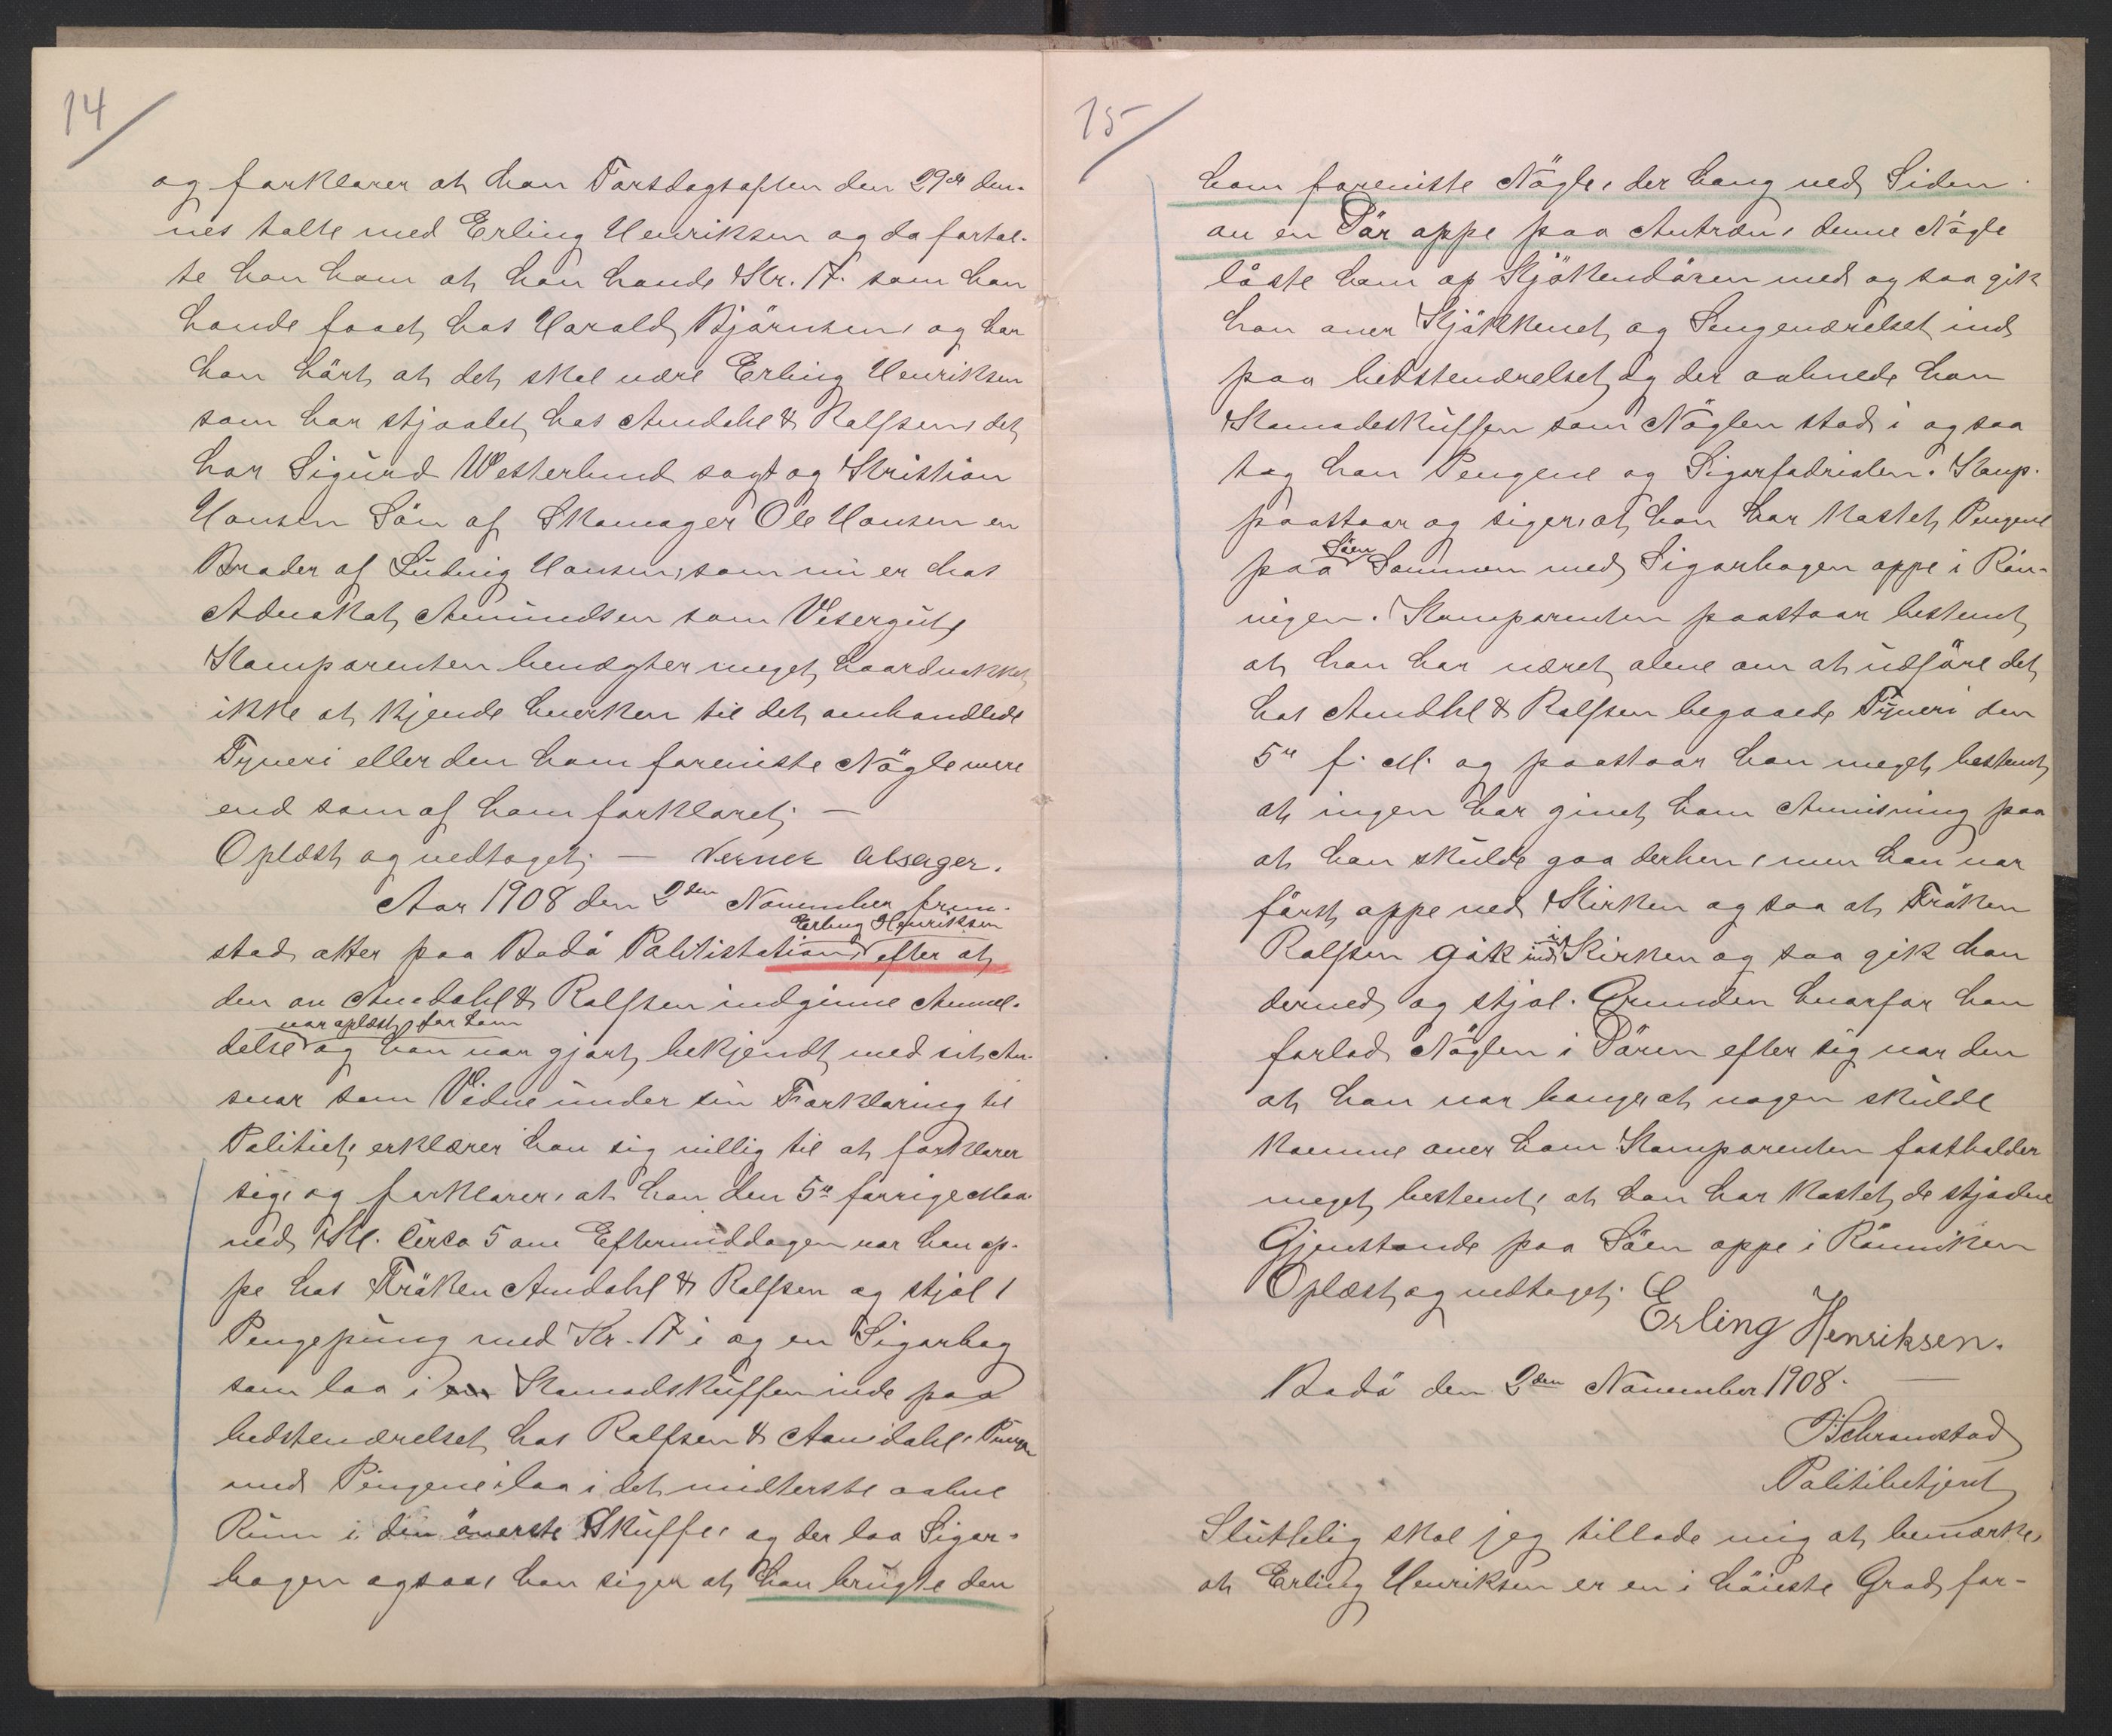 14
og forklarer at han Torsdagsaften den 29de den-
nes talte med Erling Henriksen og da fortal-
te han ham at han havde Kr. 17. som han
havde faaet hos Harald Bjørnsen, og har
han hørt at det skal være Erling Henriksen
som har stjaalet hos Amdahl & Rolfsen, det
har Sigurd Westerlund sagt og Kristian
Hansen Søn af Skomager Ole Hansen en
Broder af Ludvig Hansen, som nu er hos
Advokat Amundsen som Visergut
Komparenten benægter meget haardnakket
ikke at kjende hverken til det omhandlede
Tyveri eller den ham foreviste Nøgle mere
end som af ham forklaret. —
Oplæst og vedtaget. — Verner Alsager.
Aar 1908 den 2den November frem-
Erling Henriksen
stod atter paa Bodø Politistation, efter at
den av Amdahl & Rolfsen indgivne Anmel-
var oplæst for ham
delse og han var gjort bekjendt med sit An-
svar som Vidne under sin Forklaring til
Politiet, erklærer han sig villig til at forklarer
sig, og forklarer, at han den 5te forrige Maa-
ned Kl. Circa 5 om Eftermiddagen var han op-
pe hos Frøken Amdahl & Rolfsen og stjal 1
Pengepung med Kr. 17 i og en Sigarbag
som laa i en Komodskuffen inde paa
bedsteværelset hos Rolfsen & Amdahl, Pungen
med Pengene i laa i det midterste aabne
Rum i den øverste Skuffe, og der laa Sigar-
bagen ogsaa, han siger at han brugte den
15
ham foreviste Nøgle, der hang ved Siden
av en Dør oppe paa Antræn, denne Nøgle
låste ham op Kjøkkendøren med og saa gik
han over Kjøkkenet og Sengeværelset ind
paa bedsteværelset og der aabnede han
Komodeskuffen som Nøglen stod i og saa
tog han Pengene og Sigarfodralen. Komp.
paastaar og siger, at han har kastet Pengene
Søen
paa Sammen med Sigarbagen oppe i Røn-
vigen. Komparenten paastaar bestemt
at han har været alene om at udføre det
hos Amdhl & Rolfsen begaaede Tyveri den
5te f. M. og paastaar han meget bestemt
at ingen har givet ham Anvisning paa
at han skulde gaa derhen, men han var
først oppe ved Kirken og saa at Frøken
i
Rolfsen gik ind Kirken og saa gik han
derned og stjal. Grunden hvorfor han
forlod Nøglen i Døren efter sig var den
at han var bange at nogen skulde
komme over ham. Komparenten fastholder
meget bestemt, at han har kastet de stjaalne
Gjenstande paa Søen oppe i Rønviken
Oplæst og vedtaget.
Erling Henriksen.
Bodø den 2den November 1908. —
Politibetjent
Sluttelig skal jeg tillade mig at bemærke,
at Erling Henriksen er en i høieste Grad for-